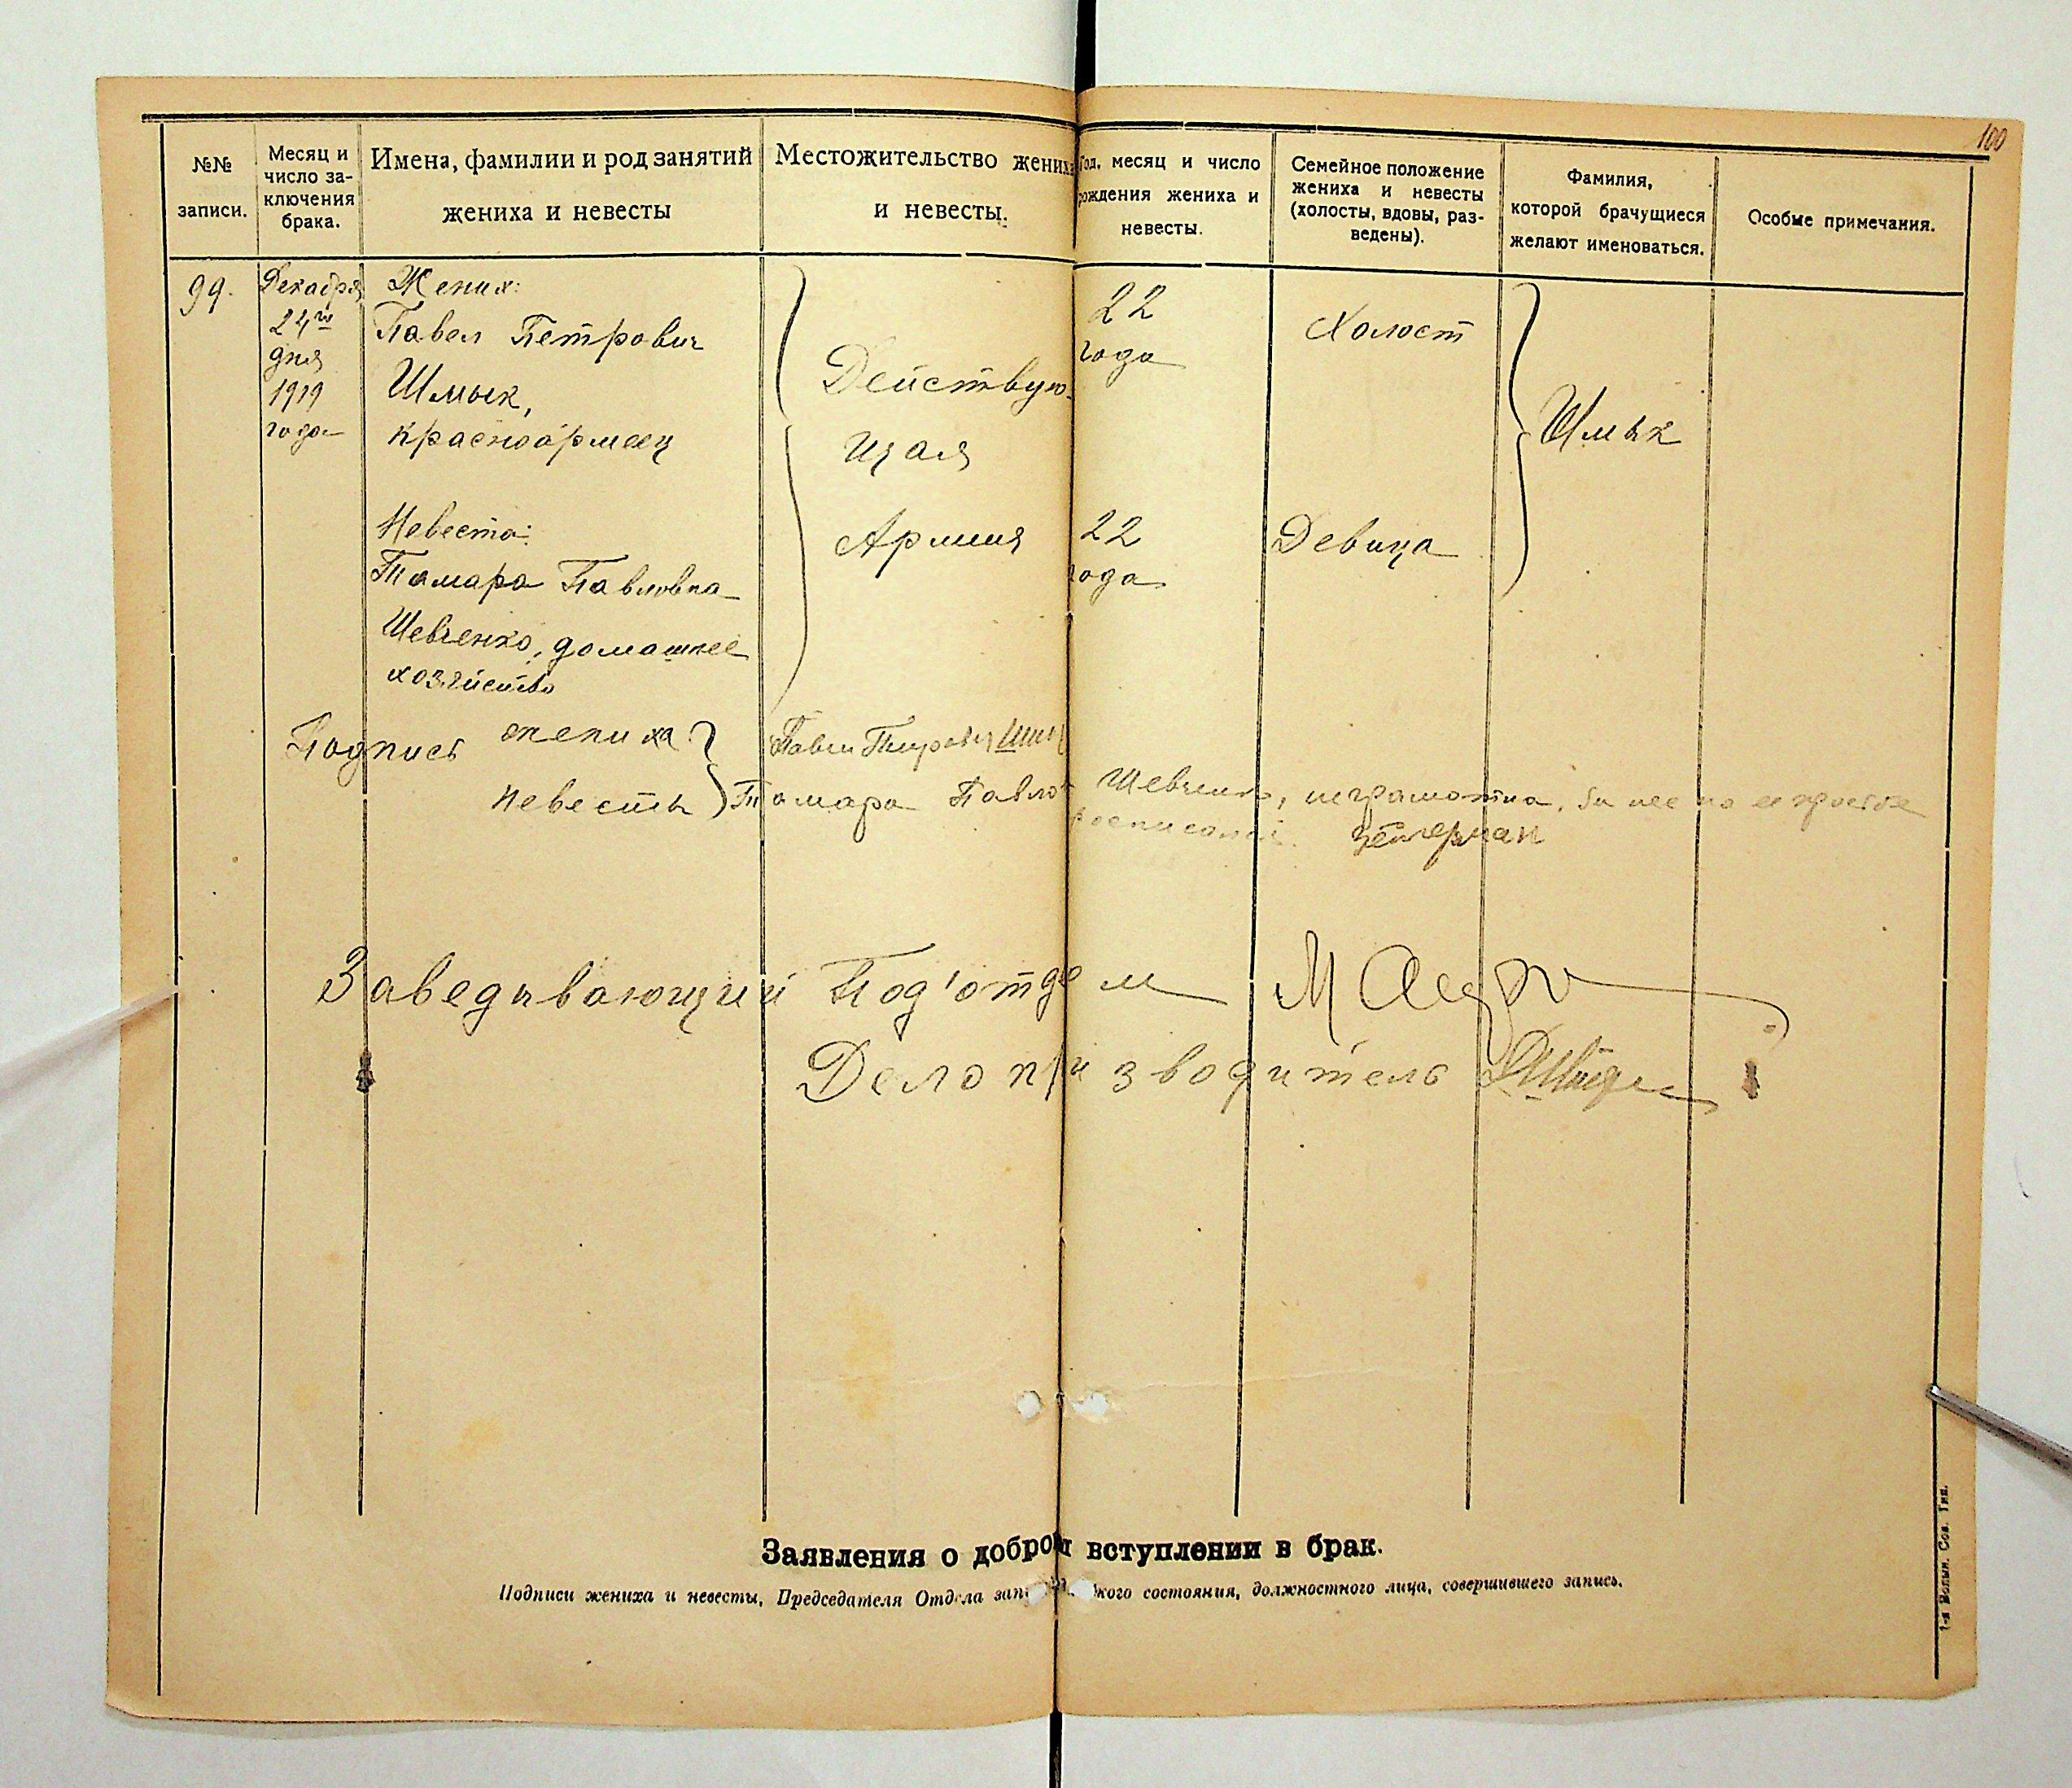 100
№№ записи.
Месяц и число за-
ключения
брака.
Имена, фамилии и род занятий
жениха и невесты
Местожительство жениха
и невесты.
Год, месяц и число
рождения жениха и
невесты.
Семейное положение
жениха и невесты
(холосты, вдовы, раз-
ведены).
Фамилия,
которой брачущиеся
желают именоваться.
Особые примечания.
99.
Декабря
24го
дня
1919
года
Жених:
Павел Петрович
Шмык,
красноармеец
Невеста:
Тамара Павловна
Шевченко, домашнее
хозяйство
Действую-
щая
Армия
22
года
22
года
Холост
Девица
Шмык
Подпись жениха Павел Петрович
невесты Тамара Павло Шевченко, неграмотна, за нее по ее просьбе
росписался
Заведывающий Под'отдом
Делопризводитель
Заявления о добром вступлении в брак.
Подписи жениха и невесты, Председателя Отдела зап кого состояния, должностного лица, совершившего запись.
1-я Волын. Сов. Тип.